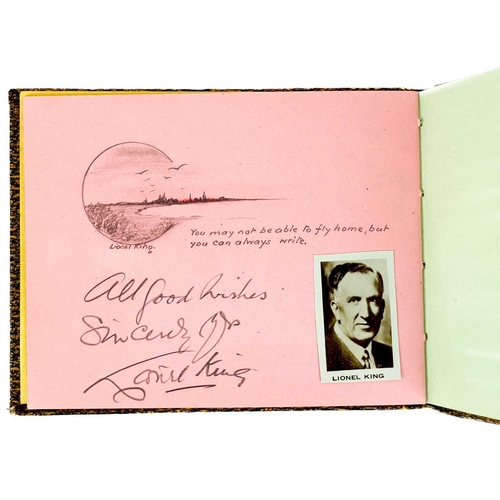 Lionel King.
You may not be able to fly home, but
you can always write.
All Good Wishes
Sincerely Yrs
Lionel King
LIONEL KING